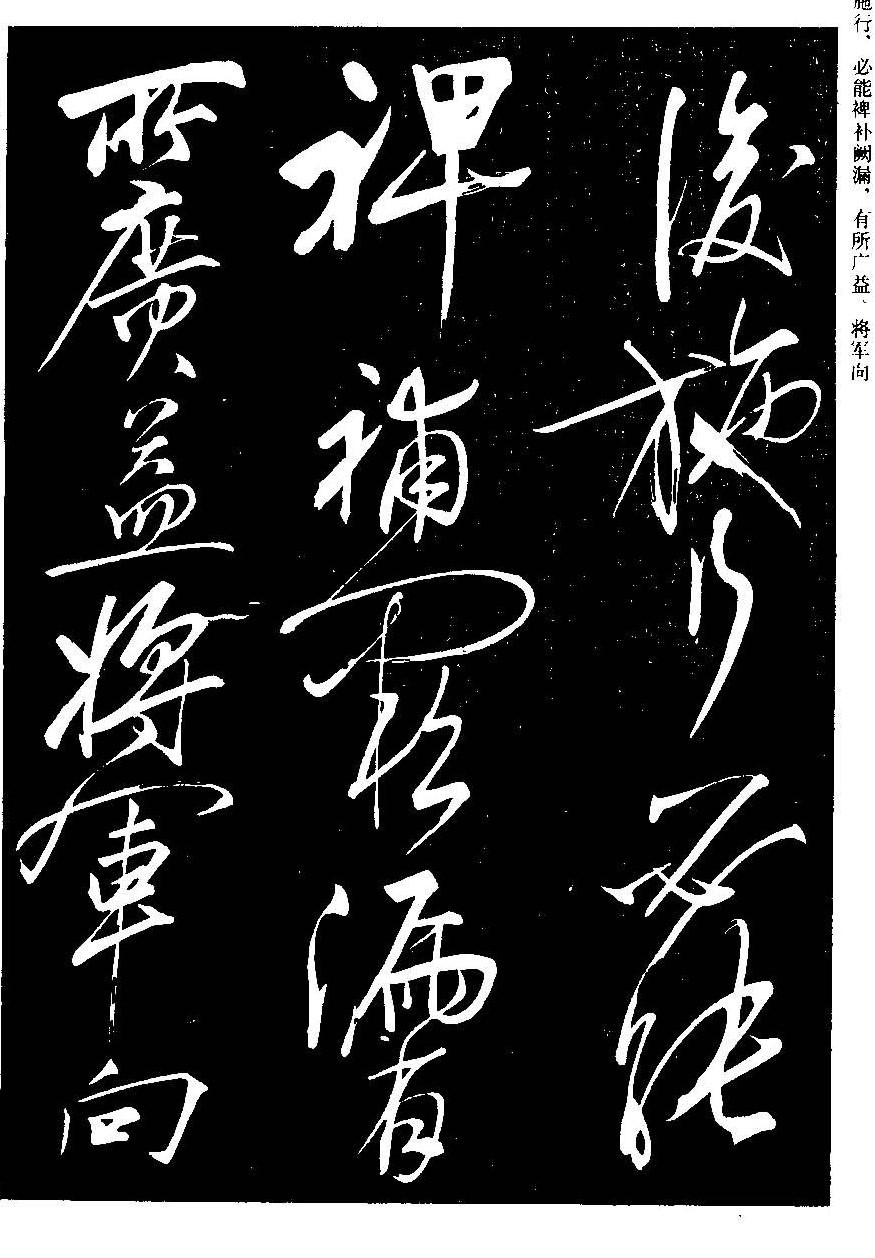 施行、必能裨补阙漏，有所广益、将军向
後施行必能
裨補闕漏有
所廣益將軍向